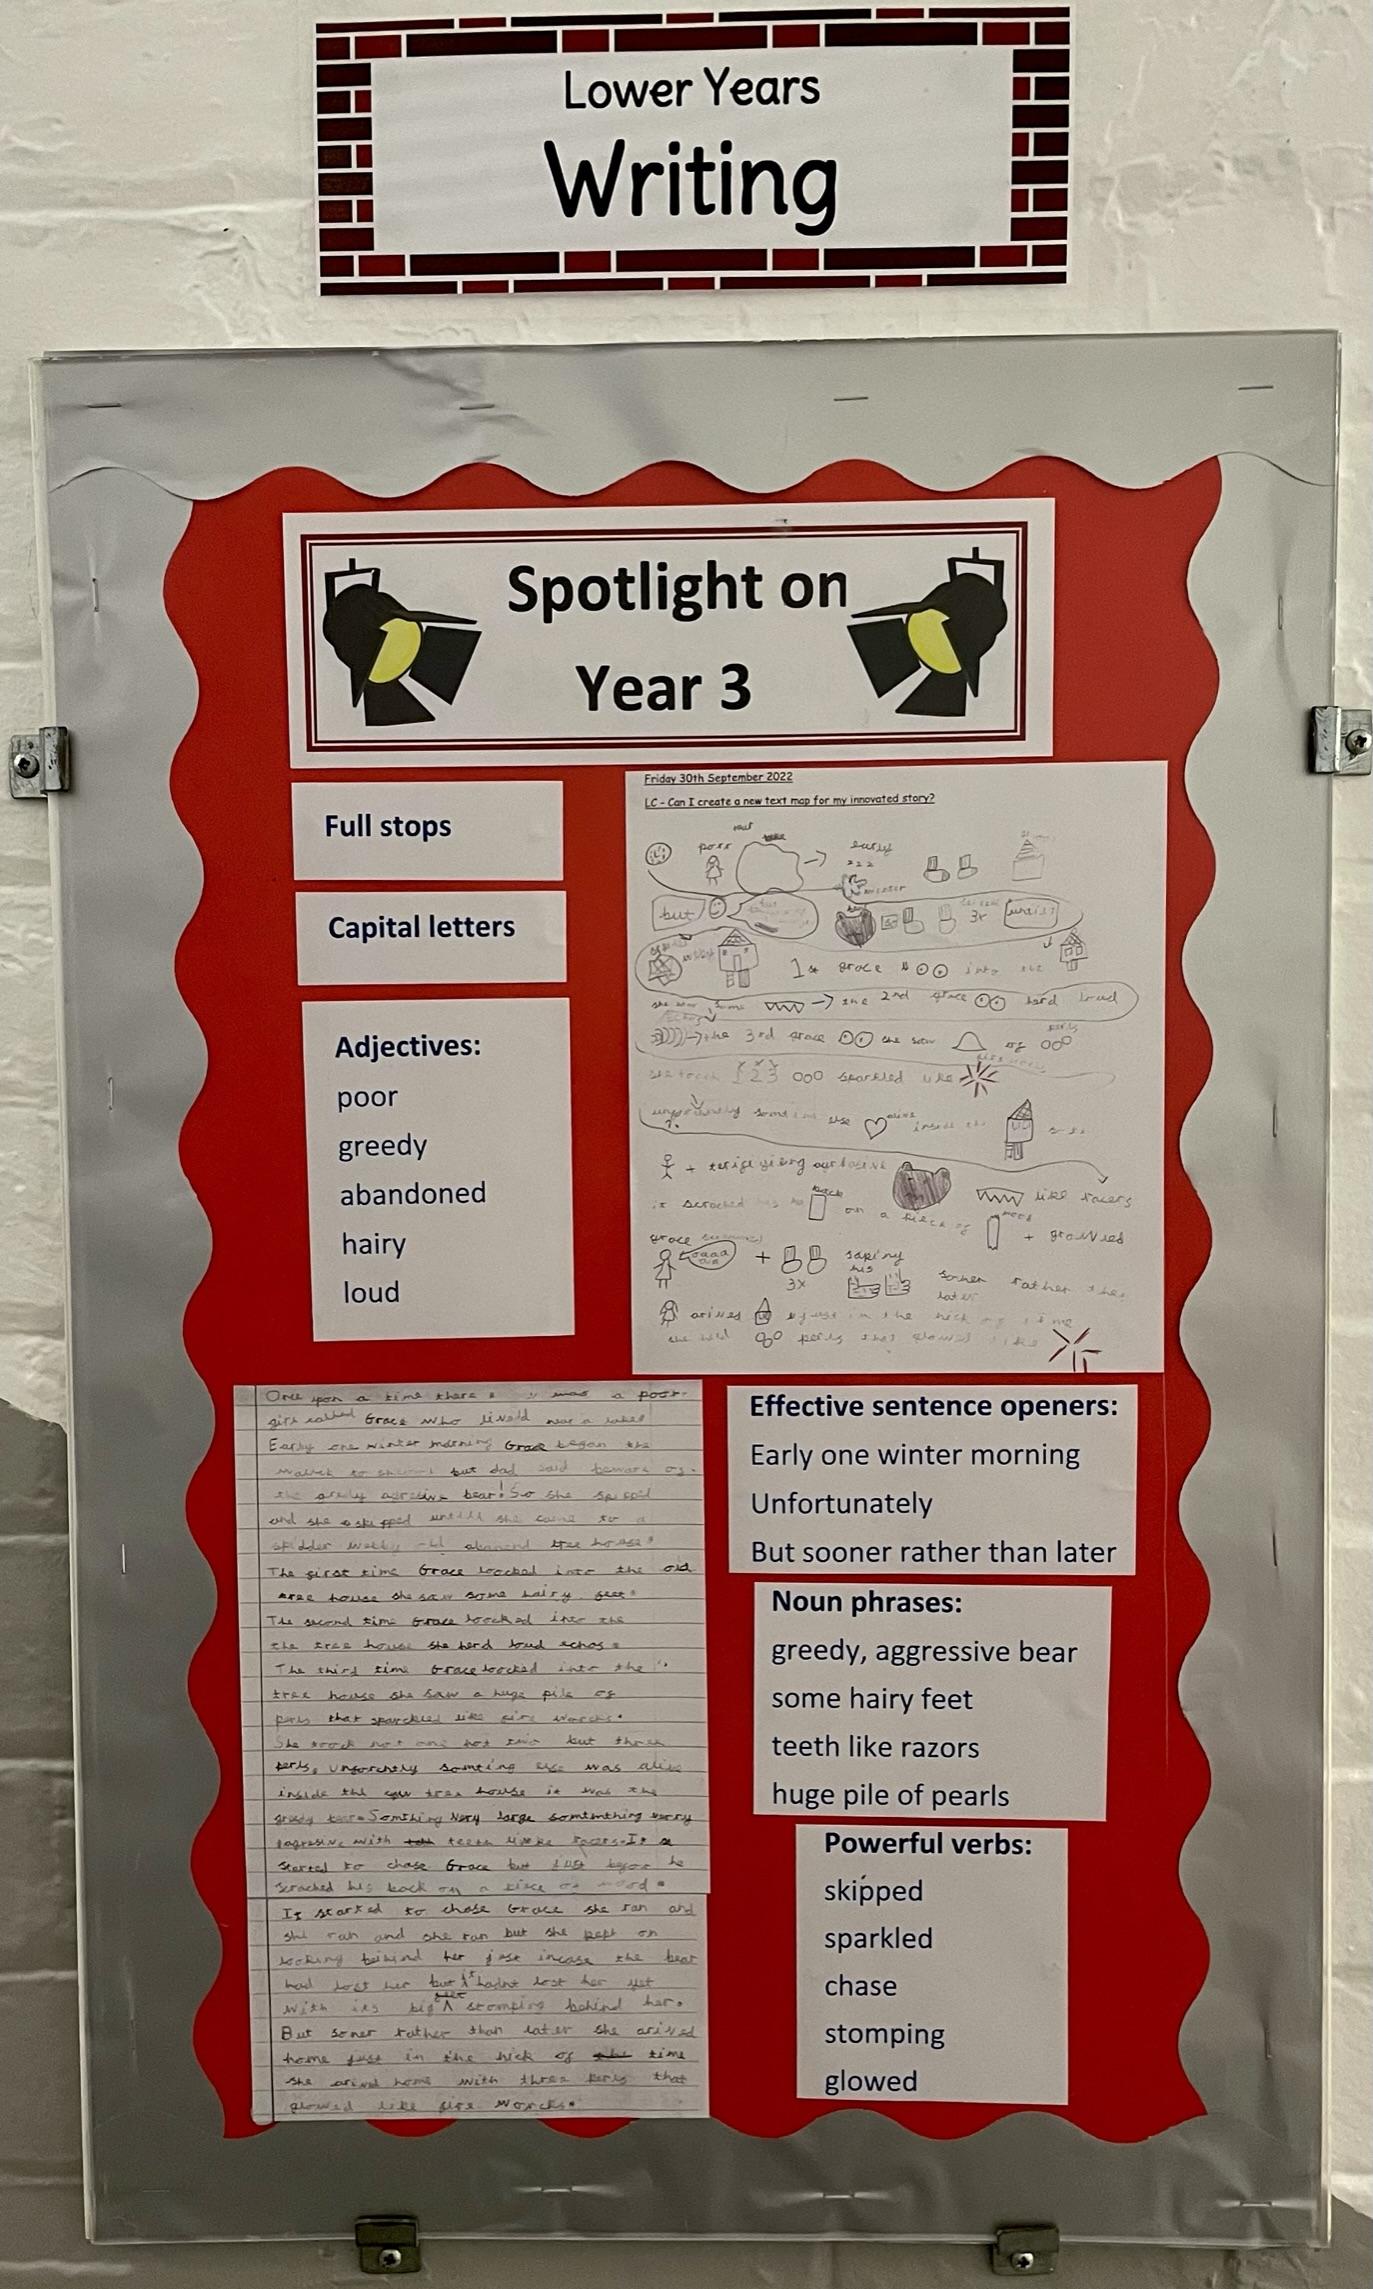 Lower Years
Writing
Spotlight on
Year 3
Full stops
Capital letters
Adjectives:
poor
greedy
abandoned
hairy
loud
Friday 30th September 2022
LC - Can I create a new text map for my innovated story?
porr
early
222
but
3x
1st grace into the
the 2nd grace hard loud
the 3rd grace she saw of
she took 1 2 3 sparkled like
alive inside the
+
like racers
it scrached his back on a piece of + growled
grace
+
3x
his
rather than
later
arived just in the nick of time
perls that glowed like
Once upon a time there was a poor
girl called Grace who livedd near a
Early one winter morning Grace began the
but dad said beware of
the agresive bear! So she
and she skipped untill she came to a
tree house.
The first time Grace loocked into the old
tree house she saw some hairy feet.
The second time Grace loocked into the
the tree house she herd loud echos.
The third time Grace loocked into the
tree house she saw a huge pile of
perls that sparckled like fire worcks.
She toock not one not two but three
perls. Unforchtly somting else was alive
inside the tree house it was the
greedy bear. Something very large verry
agresive with teeth like racers. It
started to chase Grace but just before he
scrached his back on a piece of wood.
It started to chase Grace she ran and
she ran and she ran but she kept on
looking behind her just incase the bear
had lost her but it hadnt lost her yet
with its big feet stomping behind her.
But soner rather than later she arived
home just in the nick of time
she arived home with three perls that
glowed like fire worcks.
Effective sentence openers:
Early one winter morning
Unfortunately
But sooner rather than later
Noun phrases:
greedy, aggressive bear
some hairy feet
teeth like razors
huge pile of pearls
Powerful verbs:
skipped
sparkled
chase
stomping
glowed